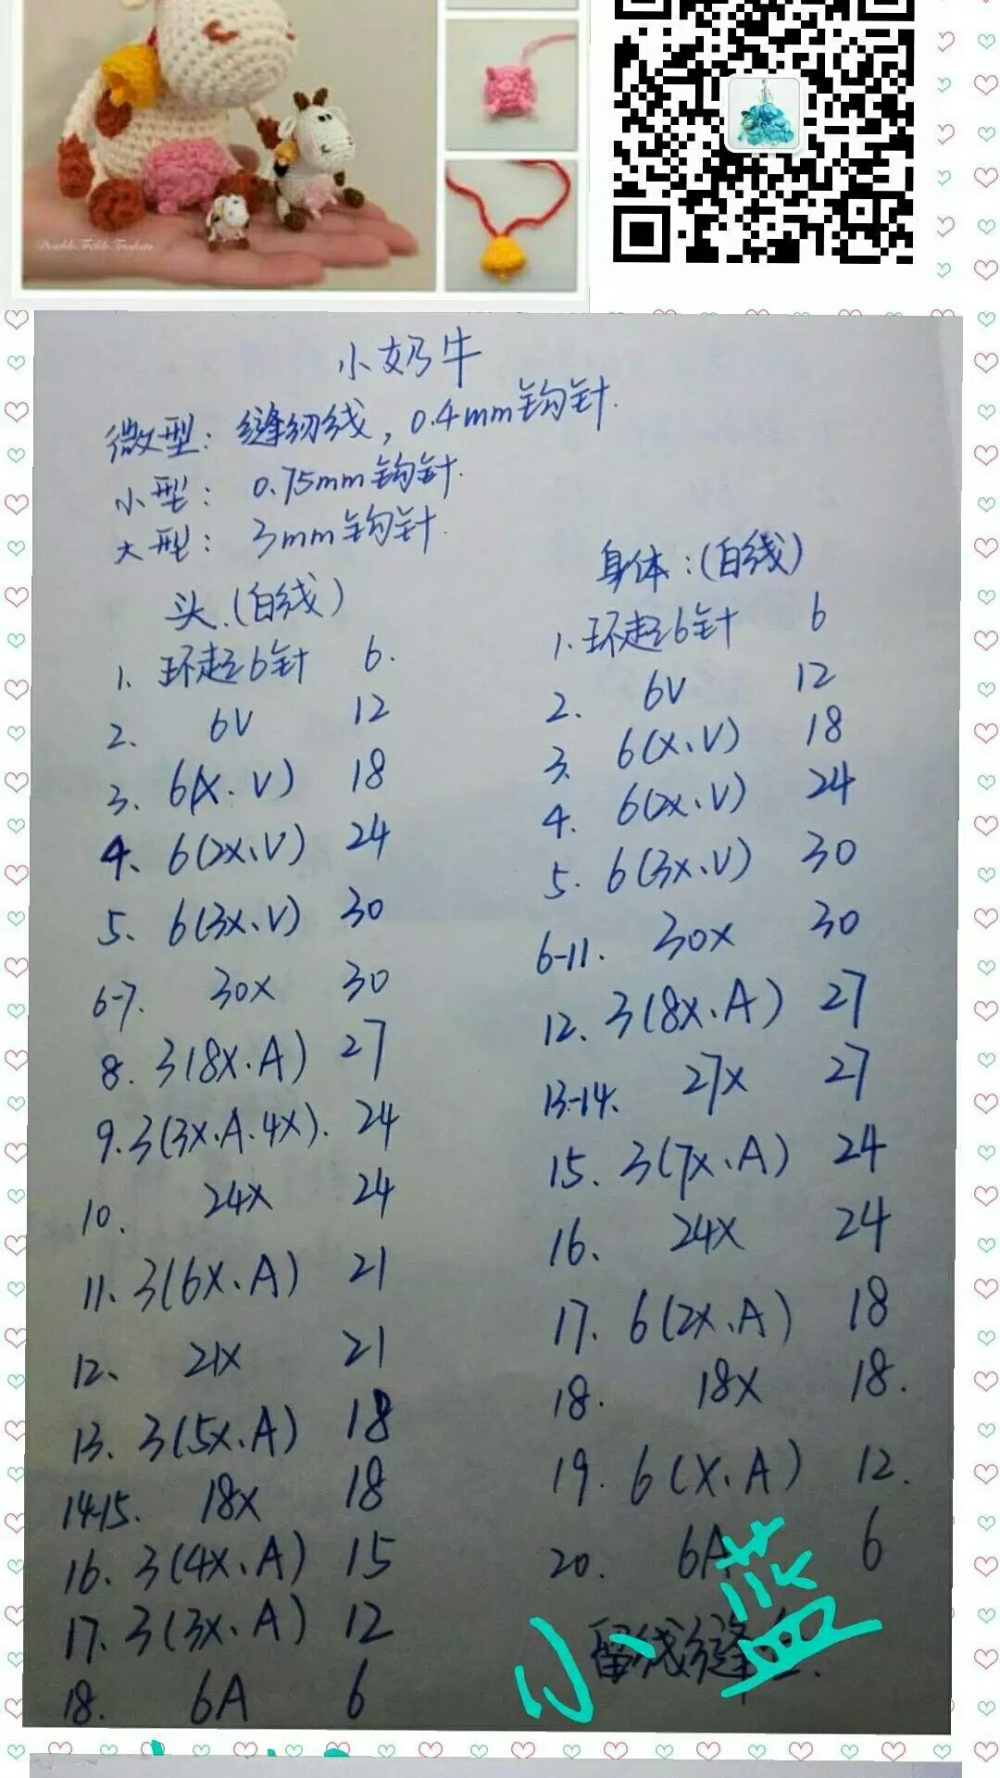 小奶牛
微型：缝纫线，0.4mm钩针.
小型：0.75mm钩针.
大型：3mm钩针.
头.(白线)
1. 环起6针 6.
2. 6V 12
3. 6(X.V) 18
4. 6(2X、V) 24
5. 6(3X、V) 30
6-7. 30X 30
8. 3(8X.A) 27
9. 3(3X.A.4X). 24
10. 24X 24
11. 3(6X、A) 21
12、 21X 21
13. 3(5X.A) 18
14-15. 18X 18
16. 3(4X、A) 15
17. 3(3X、A) 12
18. 6A 6
身体：(白线)
1. 环起6针 6
2. 6V 12
3. 6(X、V) 18
4. 6(2X、V) 24
5. 6(3X、V) 30
6-11. 30X 30
12. 3(8X.A) 27
13-14. 27X 27
15. 3(7X.A) 24
16. 24X 24
17. 6(2X.A) 18
18. 18X 18.
19. 6(X.A) 12.
20. 6A 6
留线缝
小蓝